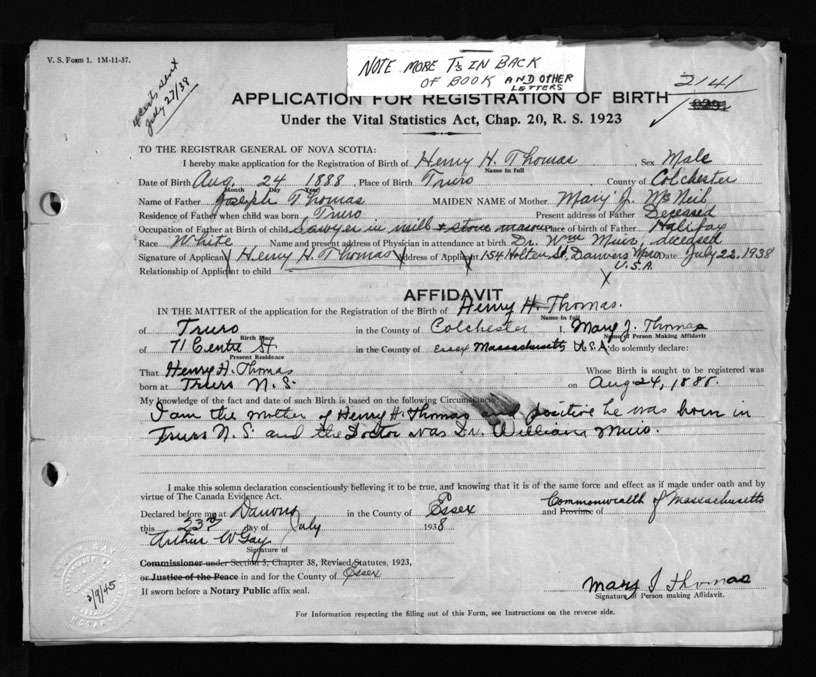 V. S. Form 1. 1M-11-37.
NOTE MORE T's IN BACK
OF BOOK AND OTHER
LETTERS
sent
July 27/38
2141
APPLICATION FOR REGISTRATION OF BIRTH
Under the Vital Statistics Act, Chap. 20, R. S. 1923
TO THE REGISTRAR GENERAL OF NOVA SCOTIA:
I hereby make application for the Registration of Birth of Henry H. Thomas Sex Male
Name in full
Date of Birth Aug. 24 1888, Place of Birth Truro County of Colchester
Month Day Year
Name of Father Joseph Thomas MAIDEN NAME of Mother Mary J. McNeil
Residence of Father when child was born Truro Present address of Father Deceased
Occupation of Father at Birth of child Sawyer in mill & stone mason Place of birth of Father Halifax
Race White Name and present address of Physician in attendance at birth Dr. Wm Muir, deceased
Signature of Applicant Henry H. Thomas Address of Applicant 154 Holten St. Danvers Mass Date July 22, 1938
U.S.A.
Relationship of Applicant to child
AFFIDAVIT
IN THE MATTER of the application for the Registration of the Birth of Henry H. Thomas.
Name in full
of Truro in the County of Colchester I, Mary J. Thomas
Birth Place Name of Person Making Affidavit
of 71 Centre St. in the County of Essex Massachusetts U.S.A. do solemnly declare:
Present Residence
That Henry H. Thomas Whose Birth is sought to be registered was
born at Truro N.S. on Aug 24, 1888.
My knowledge of the fact and date of such Birth is based on the following Circumstances
I am the mother of Henry H. Thomas and positive he was born in
Truro N.S. and the Doctor was Dr. William Muir.
I make this solemn declaration conscientiously believing it to be true, and knowing that it is of the same force and effect as if made under oath and by
virtue of The Canada Evidence Act.
Declared before me at Danvers in the County of Essex and Province of Commonwealth of Massachusetts
this 23rd day of July 1938
Arthur W Gay
Signature of
Commissioner under Section 5, Chapter 38, Revised Statutes, 1923,
or Justice of the Peace in and for the County of Essex
If sworn before a Notary Public affix seal.
3/9/45
Mary J Thomas
Signature of Person making Affidavit.
For Information respecting the filling out of this Form, see Instructions on the reverse side.